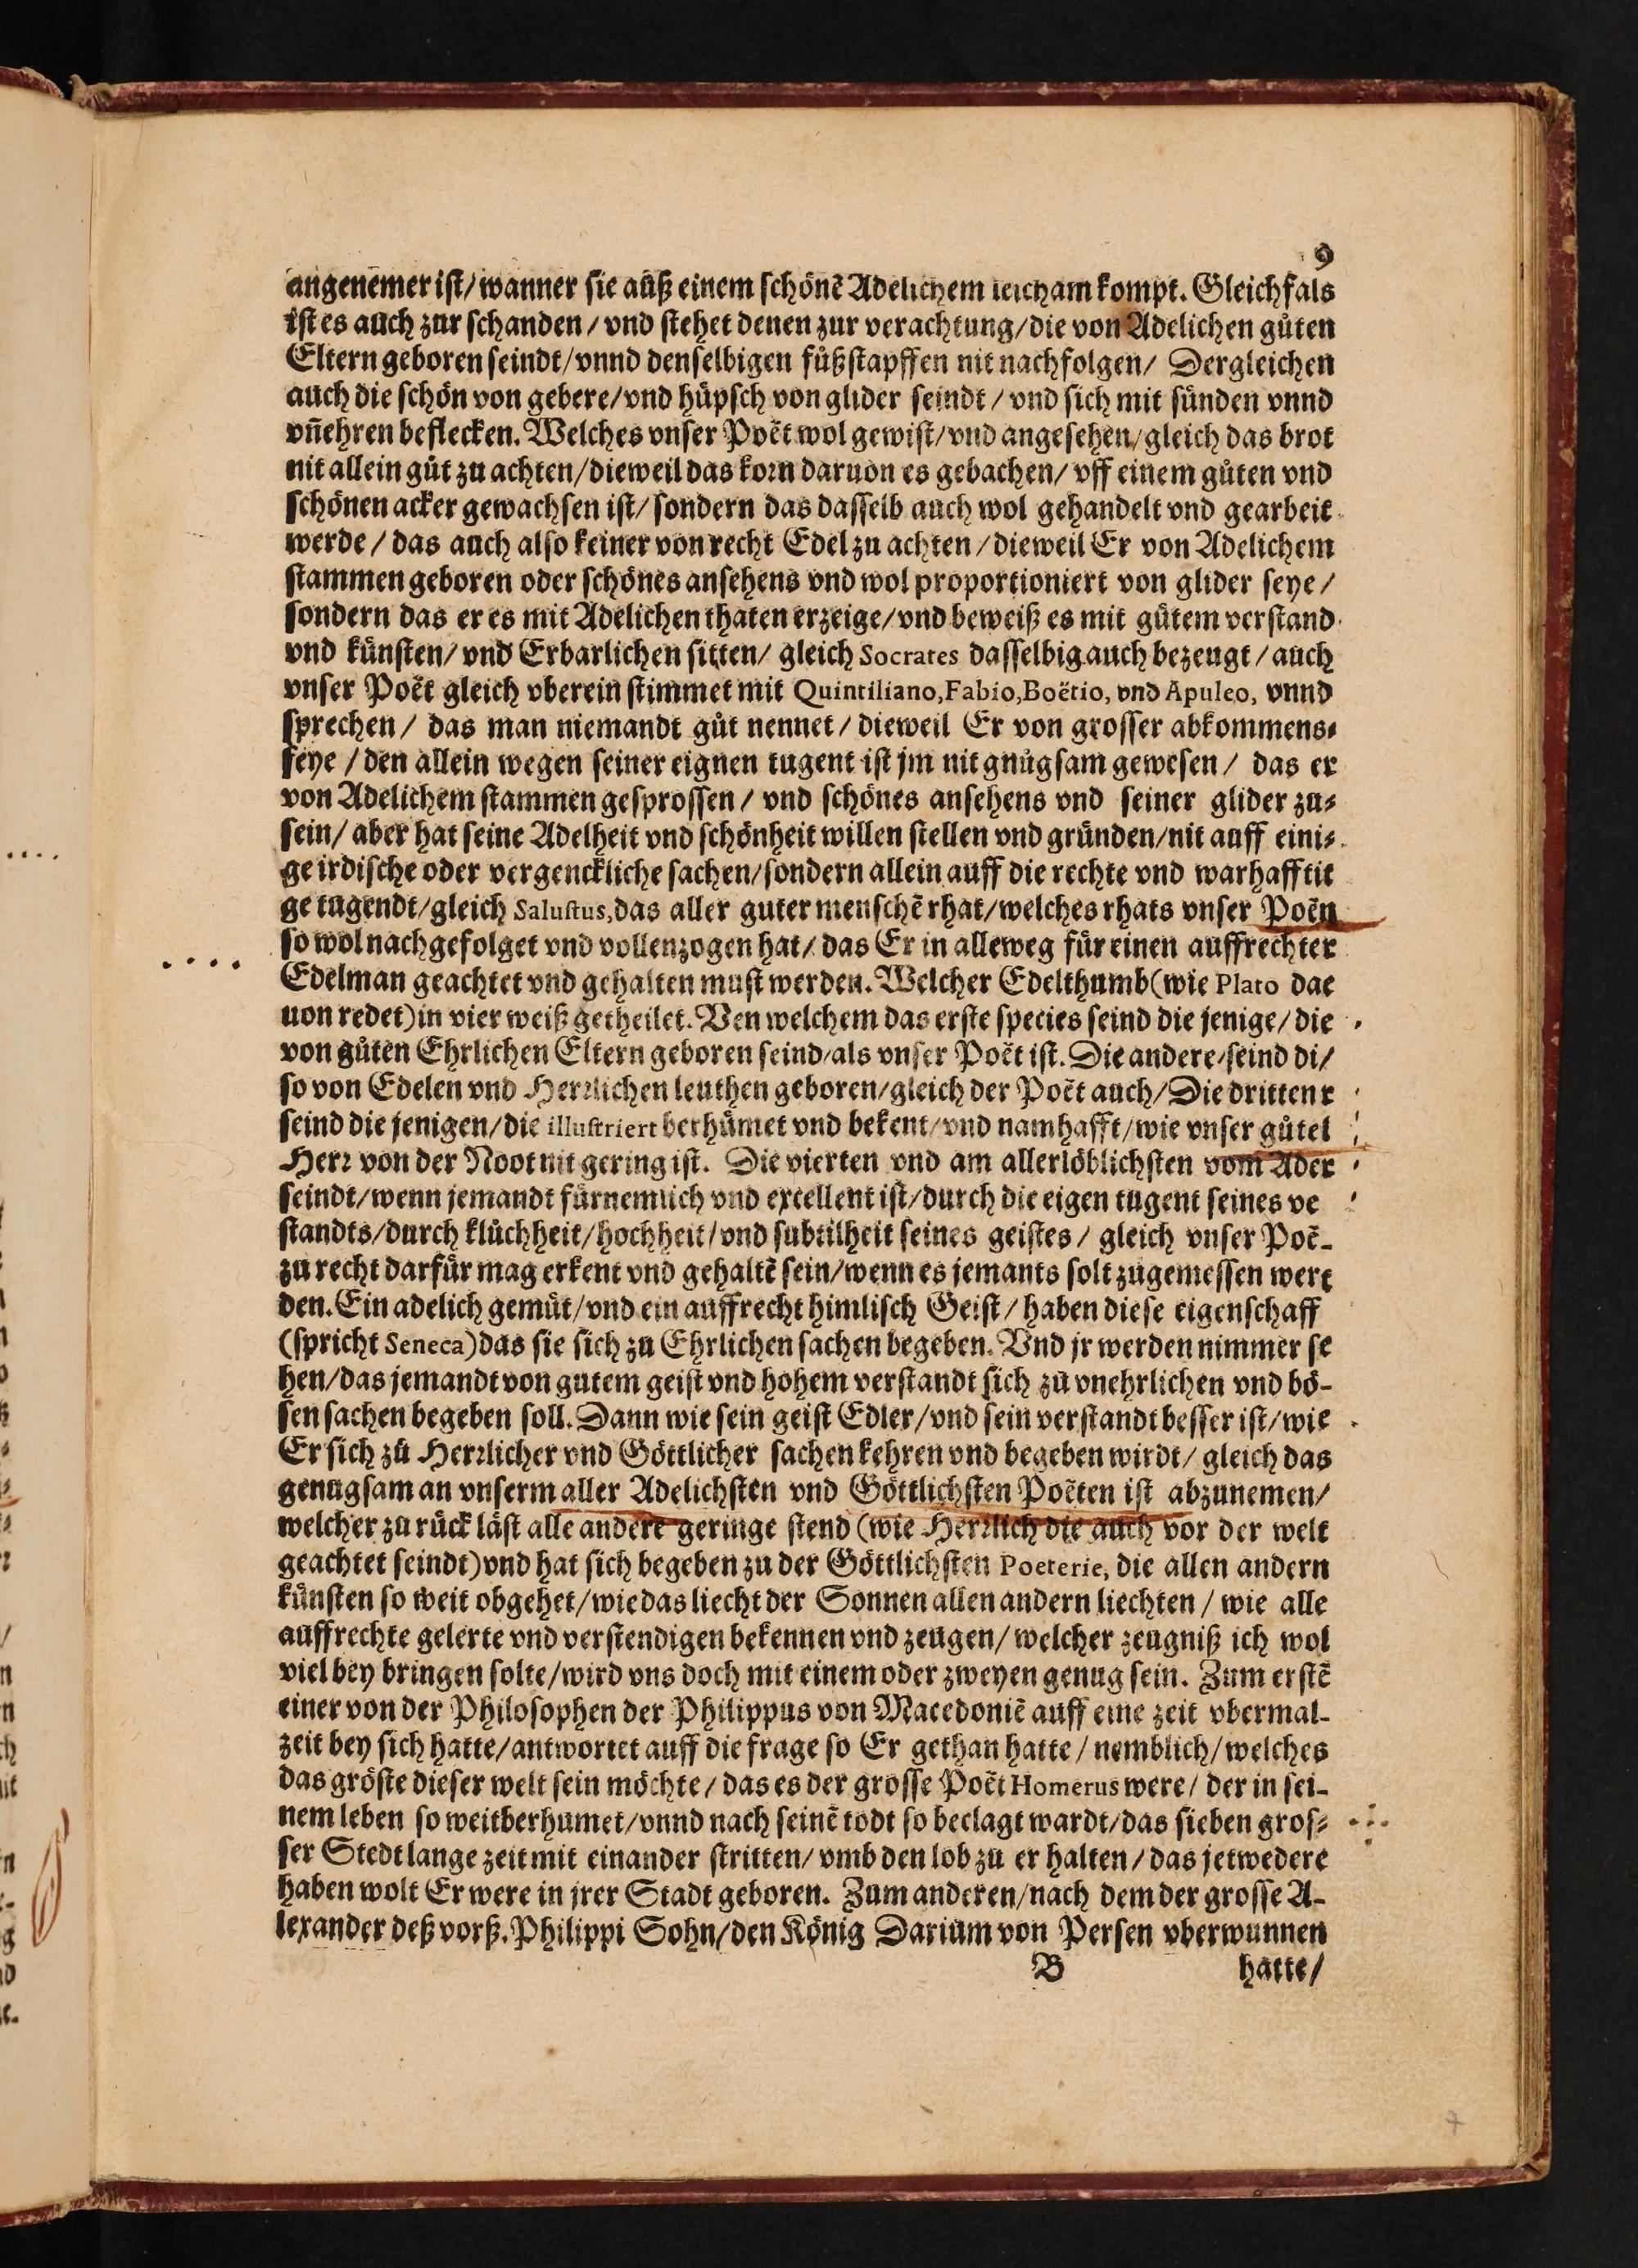 9
angenemer ist/wanner sie auß einem schönē Adelichem leicham kompt. Gleichfals
ist es auch zur schanden/vnd stehet denen zur verachtung/die von Adelichen gůten
Eltern geboren seindt/vnnd denselbigen fůßstapffen nit nachfolgen/ Dergleichen
auch die schön von gebere/vnd hüpsch von glider seindt/vnd sich mit sünden vnnd
vn̄ehren beflecken. Welches vnser Poët wol gewist/vnd angesehen/gleich das brot
nit allein gůt zu achten/dieweil das korn daruon es gebachen/vff einem gůten vnd
schönen acker gewachsen ist/sondern das dasselb auch wol gehandelt vnd gearbeit
werde/das auch also keiner von recht Edel zu achten/dieweil Er von Adelichem
stammen geboren oder schönes ansehens vnd wol proportioniert von glider seye/
sondern das er es mit Adelichen thaten erzeige/vnd beweiß es mit gůtem verstand
vnd künsten/vnd Erbarlichen sitten/ gleich Socrates dasselbig auch bezeugt/auch
vnser Poët gleich vberein stimmet mit Quintiliano, Fabio, Boëtio, vnd Apuleo, vnnd
sprechen/ das man niemandt gůt nennet/ dieweil Er von grosser abkommens⸗
seye/den allein wegen seiner eignen tugent ist jm nit gnůgsam gewesen/ das er
von Adelichem stammen gesprossen/ vnd schönes ansehens vnd seiner glider zu⸗
sein/ aber hat seine Adelheit vnd schönheit willen stellen vnd gründen/nit auff eini⸗
ge irdische oder vergenckliche sachen/sondern allein auff die rechte vnd warhafftit
ge tugendt/gleich Salustus, das aller guter menschē rhat/welches rhats vnser Poën
so wol nachgefolget vnd vollenzogen hat/das Er in alleweg für einen auffrechter
Edelman geachtet vnd gehalten must werden. Welcher Edelthumb (wie Plato dae
uon redet) in vier weiß getheilet. Ven welchem das erste species seind die jenige/die
von gůten Ehrlichen Eltern geboren seind/als vnser Poët ist. Die andere/seind di/
so von Edelen vnd Herrlichen leuthen geboren/gleich der Poët auch/Die dritten r
seind die jenigen/die illustriert berhümet vnd bekent/vnd namhafft/wie vnser gůtel
Herr von der Noot nit gering ist. Die vierten vnd am allerlöblichsten vom Ader
seindt/wenn jemandt fürnemlich vnd excellent ist/durch die eigen tugent seines ve
standts/durch klůchheit/hochheit/vnd subtilheit seines geistes/ gleich vnser Poë-
zu recht darfür mag erkent vnd gehaltē sein/wenn es jemants solt zugemessen wert
den. Ein adelich gemüt/vnd ein auffrecht himlisch Geist/haben diese eigenschaff
(spricht Seneca) das sie sich zu Ehrlichen sachen begeben. Vnd jr werden nimmer se
hen/das jemandt von gutem geist vnd hohem verstandt sich zu vnehrlichen vnd bö-
sen sachen begeben soll. Dann wie sein geist Edler/vnd sein verstandt besser ist/wie
Er sich zů Herrlicher vnd Göttlicher sachen kehren vnd begeben wirdt/ gleich das
genugsam an vnserm aller Adelichsten vnd Göttlichsten Poëten ist abzunemen/
welcher zu rück läst alle andere geringe stend (wie Herrlich die auch vor der welt
geachtet seindt) vnd hat sich begeben zu der Göttlichsten Poeterie, die allen andern
künsten so weit obgehet/wie das liecht der Sonnen allen andern liechten/ wie alle
auffrechte gelerte vnd verstendigen bekennen vnd zeugen/ welcher zeugniß ich wol
viel bey bringen solte/wird vns doch mit einem oder zweyen genug sein. Zum erstē
einer von der Philosophen der Philippus von Macedoniē auff eine zeit vbermal-
zeit bey sich hatte/antwortet auff die frage so Er gethan hatte/ nemblich/welches
das gröste dieser welt sein möchte/ das es der grosse Poët Homerus were/ der in sei-
nem leben so weitberhumet/vnnd nach seinē todt so beclagt wardt/das sieben gros⸗
ser Stedt lange zeit mit einander stritten/ vmb den lob zu er halten/das jetwedere
haben wolt Er were in jrer Stadt geboren. Zum anderen/nach dem der grosse A-
lexander deß vorß. Philippi Sohn/den König Darium von Persen vberwunnen
B hatte/